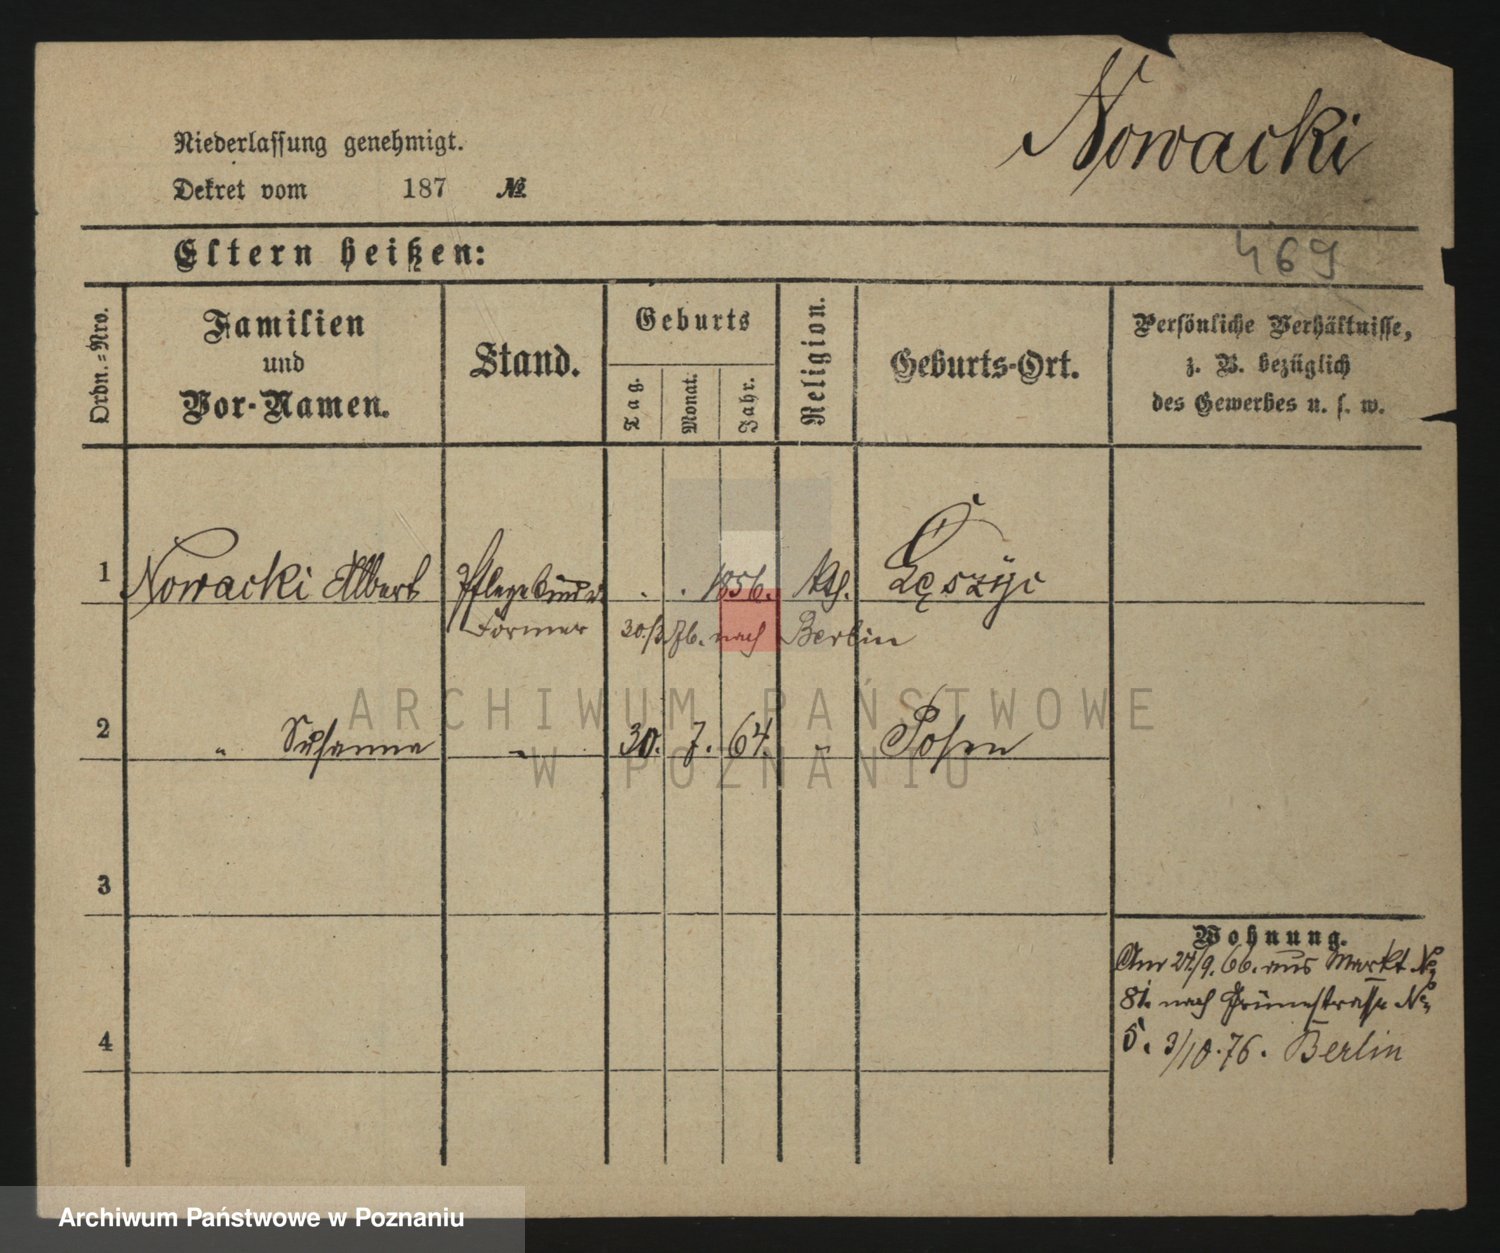 Nowacki
Niederlassung genehmigt.
Dekret vom 187 №
Eltern heißen:
469
Ordn.-Nro.
Familien
und
Vor-Namen.
Stand.
Geburts
Tag.
Monat.
Jahr.
Religion.
Geburts-Ort.
Persönliche Verhältnisse,
z. B. bezüglich
des Gewerbes u. s. w.
1 Nowacki Albert Pflegekind . . 1856. kth.
Former nach Berlin
2 " Susanna " 30. 7. 64. " Posen
3
Wohnung.
Am 27/9. 66. aus Markt No
81. nach Grünestrasse No
4
5. 3/10. 76. Berlin
ARCHIWUM PAŃSTWOWE
W POZNANIU
Archiwum Państwowe w Poznaniu